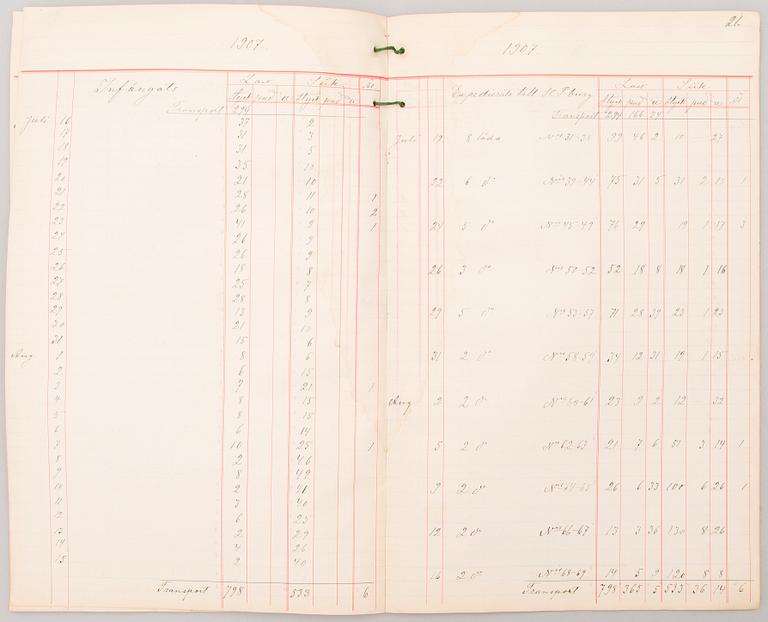 1907.
Infångats
Lax Siik Ål
Styck pud ℔ Styck pud ℔
Transport 294
Juli 16 37 2
17 31 3
18 31 5
19 35 10
20 21 10
21 28 11 1
22 26 10 2
23 41 9 1
24 26 9
25 26 9
26 18 8
27 25 7
28 28 8
29 13 9
30 21 10
31 15 6
Aug 1 8 6
2 6 15
3 7 21 1
4 8 15
5 8 15
6 14
7 10 25 1
8 2 46
9 8 49
10 2 41
11 3 40
12 6 25
13 2 29
14 4 26
15 2 40
Transport 798 533 6
1907
Expedierats till St Pburg
Lax Siik Ål
Styck pud ℔ Styck pud ℔
Transport 294 166 34
Juli 19 8 låda No 31-38 99 46 2 10 - 27
22 6 do No 39-44 75 31 5 31 2 17 1
24 5 do No 45-49 76 29 19 1 17 3
26 3 do No 50-52 52 18 8 18 1 16
29 5 do No 53-57 71 28 39 23 1 23
31 2 do No 58-59 34 12 31 19 1 15
Aug 2 2 do No 60-61 23 9 2 12 - 32
5 2 do No 62-63 21 7 6 51 3 14 1
9 2 do No 64-65 26 6 33 100 6 26 1
12 2 do No 66-67 13 3 36 130 8 26
16 2 do No 68-69 14 5 9 120 8 8
Transport 798 365 5 533 36 14 6